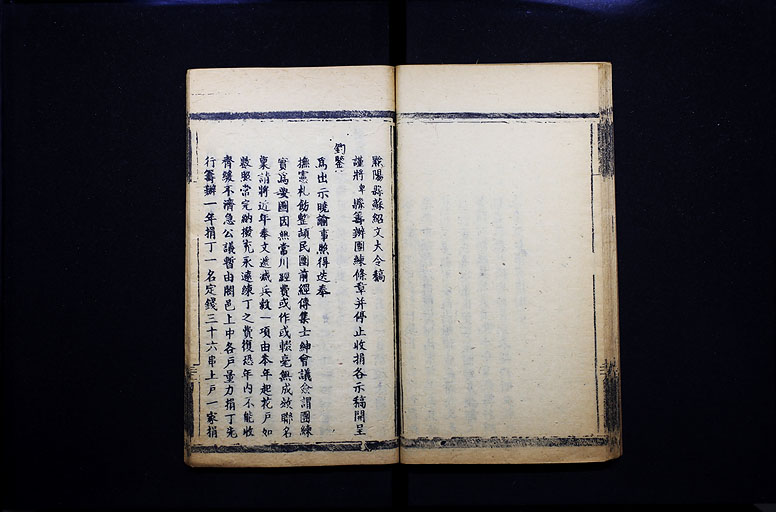 歙陽縣蘇紹文大令稿
謹將卑縣籌辦團練條章并停止收捐各示稿開呈
鈞鑒
為出示曉諭事照得迭奉
撫憲札飭整頓民團前經傳集士紳會議僉謂團練
實為要圖因無常川經費或作或輟毫無成效聯名
稟請將近年奉文遞減兵穀一項由本年起花戶如
數照常完納撥充永遠練丁之費復恐年內不能收
齊緩不濟急公議暫由闔邑上中各戶量力捐丁先
行籌辦一年捐丁一名定錢三十六串上戶一家捐